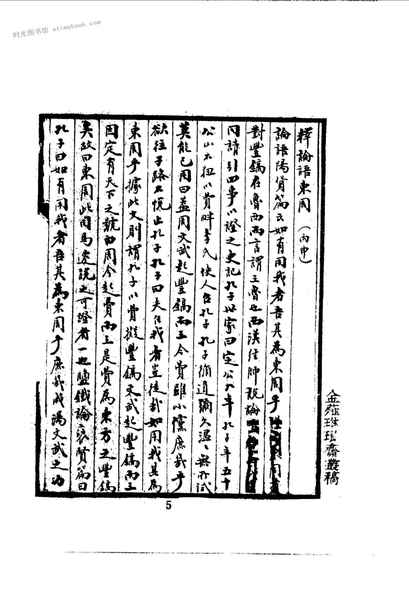 时光图书馆 etimebook.com
釋論語東周（丙申）
論語陽貨篇云如有用我者吾其爲東周乎
對豐鎬在魯而言謂王魯也西漢經師說論
同請引四事以證之史記孔子世家曰定公九年孔子年五十
公山不狃以費畔季氏使人召孔子孔子循道彌久溫溫無所試
莫能己用曰蓋周文武起豐鎬而王今費雖小儻庶幾乎
欲往子路不悅止孔子孔子曰夫召我者豈徒哉如用我其爲
東周乎據此文則謂孔子以費擬豐鎬文武起豐鎬而王
因定有天下之號曰周今起費而王是費爲東方之豐鎬
矣故曰東周此司馬遷說之可證者一也鹽鐵論褒賢篇曰
孔子曰如有用我者吾其爲東周乎庶幾成湯文武之功
齋叢稿
5